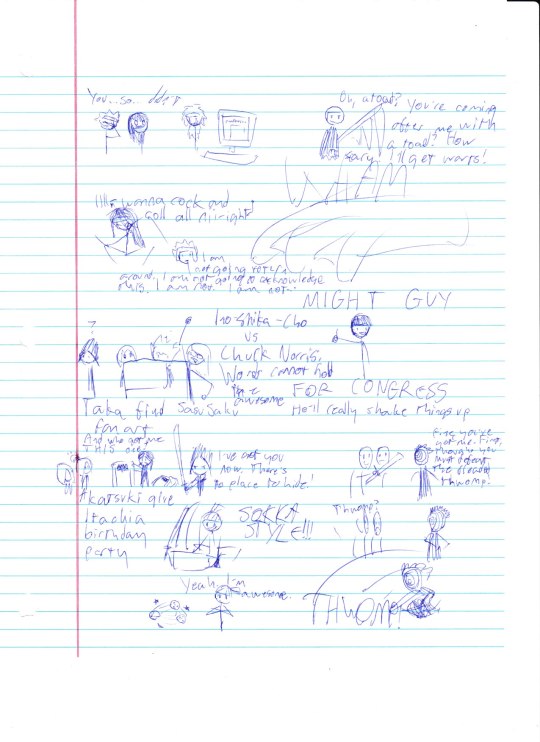 You...so...didn't
Oh, a toad? You're coming
after me with
a toad? How
scary. I'll get warts!
WHAM
wanna rock and
roll all night!
I am
not going to turn
around. I am not going to acknowledge
this. I am not. I am not...
MIGHT GUY
?
Ino-Shika-Cho
vs
Chuck Norris.
Words cannot hold
the
awesome
FOR CONGRESS
He'll really shake things up
Taka find SasuSaku
fan art
And who got me
THIS one
I've got you
now. There's
no place to hide!
Fine, you've
got me. First,
though, you
must defeat
the dreaded
thwomp.
Akatsuki give
Itachi a
birthday
party
SOKKA
STYLE!!!
Thwomp?
Yeah, I'm
awesome.
THWOMP!